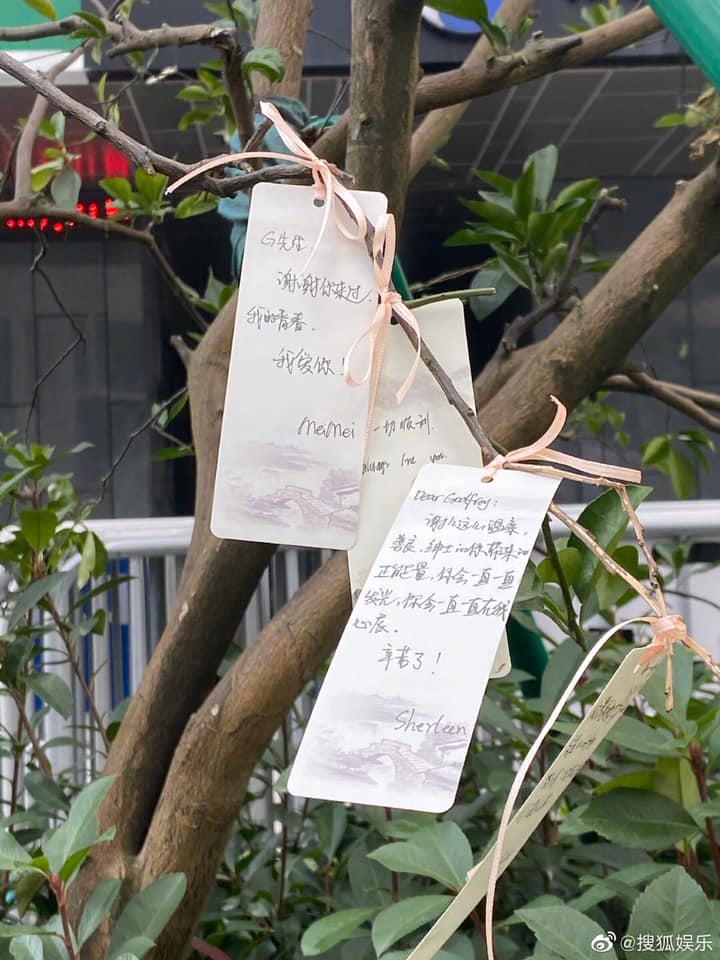 G先生,
谢谢你来过
我的青春.
我爱你!
MeiMei
一切顺利.
Always love you
Dear Godfrey:
谢谢这么温柔,
善良,绅士的你带来的
正能量,你会一直一直
发光,你会一直一直在我
心底.
辛苦了!
Sherleen
@搜狐娱乐